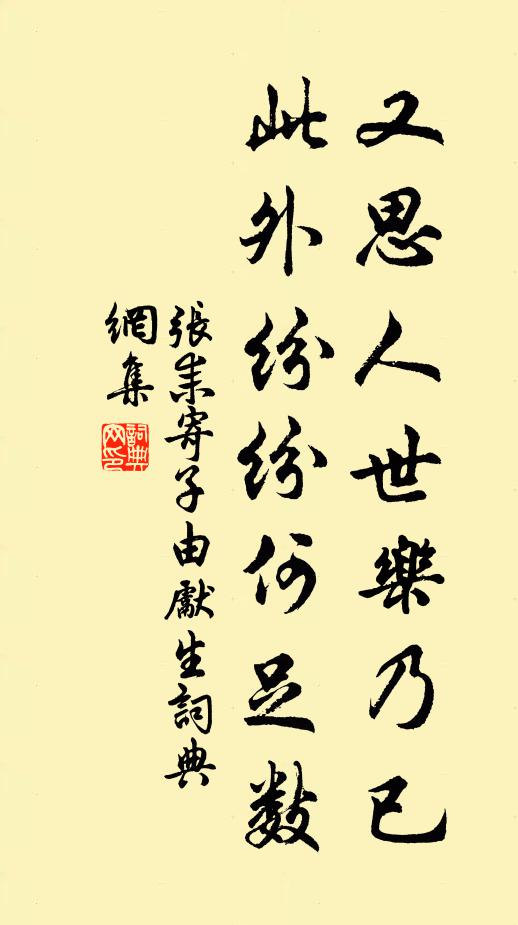 又思人世樂乃已
此外紛紛何足數
張耒寄子由獻生詞典
網集
詞典
网印